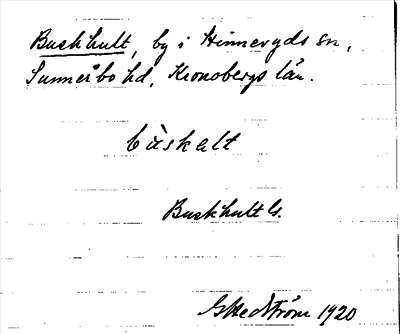 Buskhult, by i Hinneryds sn,
Sunnerbo hd, Kronobergs län.
bùskalt
Buskhult ls.
G Hedström 1920